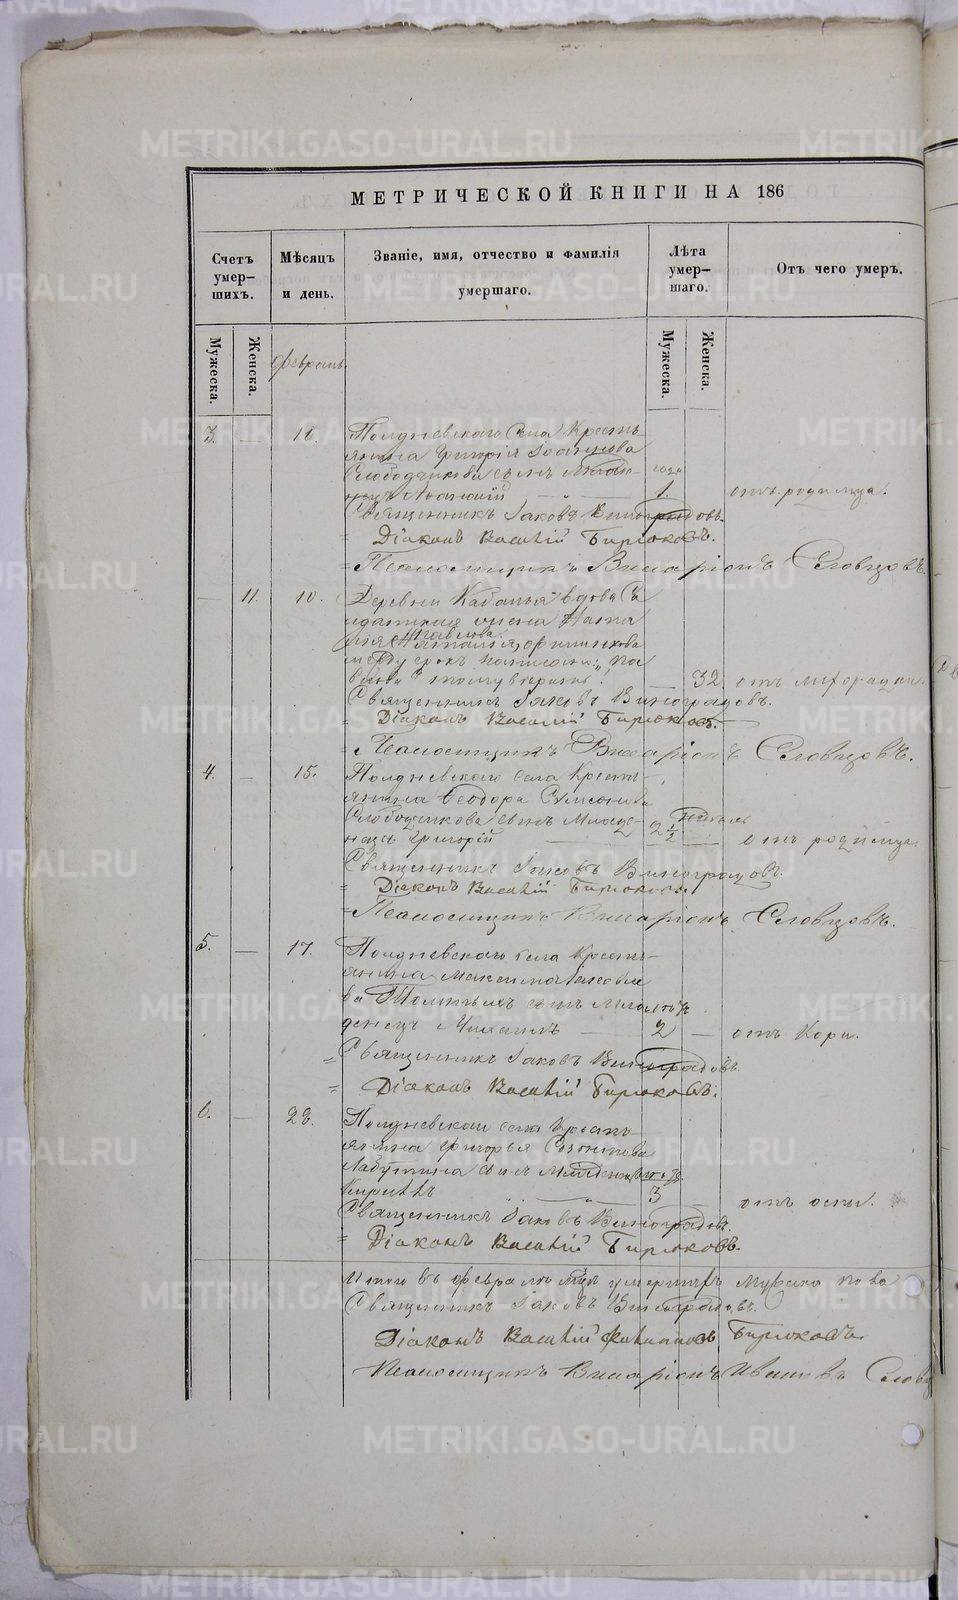 МЕТРИЧЕСКОЙ КНИГИ НА 186
Счетъ умер-шихъ.
Мѣсяцъ и день.
Званіе, имя, отчество и фамилія умершаго.
Лѣта умер-шаго.
Отъ чего умеръ.
Мужеска.
Женска.
Февраль.
Мужеска.
Женска.
3. — 10. Полдневскаго села Кресть-
янина Григорія Іоаннова
Слободчикова сынъ Младе-
нецъ
1. отъ родимца.
Священникъ Іаковъ Виноградовъ.
Діаконъ Василій Бирюковъ.
Псаломщикъ Виссаріонъ Словцовъ.
— 11. 10. Деревни вдова
— 32 отъ лихорадки.
Священникъ Іаковъ Виноградовъ.
Діаконъ Василій Бирюковъ.
Псаломщикъ Виссаріонъ Словцовъ.
4. — 15. Полдневскаго села Кресть-
янина Ѳеодора Симеонова
Слободчикова сынъ Младе-
нецъ Григорій — 2½ — отъ родимца.
Священникъ Іаковъ Виноградовъ.
Діаконъ Василій Бирюковъ.
Псаломщикъ Виссаріонъ Словцовъ.
5. — 17. Полдневскаго села Кресть-
янина
сынъ Мла-
денецъ Михаилъ — 2 — отъ Кори.
Священникъ Іаковъ Виноградовъ.
Діаконъ Василій Бирюковъ.
6. — 28. Полдневскаго села Кресть-
янина Григорья
Лабутина сынъ Младенецъ
Кириллъ — 3 — отъ оспы.
Священникъ Іаковъ Виноградовъ.
Діаконъ Василій Бирюковъ.
Итого въ февралѣ умершихъ мужеска пола
Священникъ Іаковъ Виноградовъ.
Діаконъ Василій Филиповъ Бирюковъ.
Псаломщикъ Виссаріонъ Ивановъ Слов
METRIKI.GASO-URAL.RU